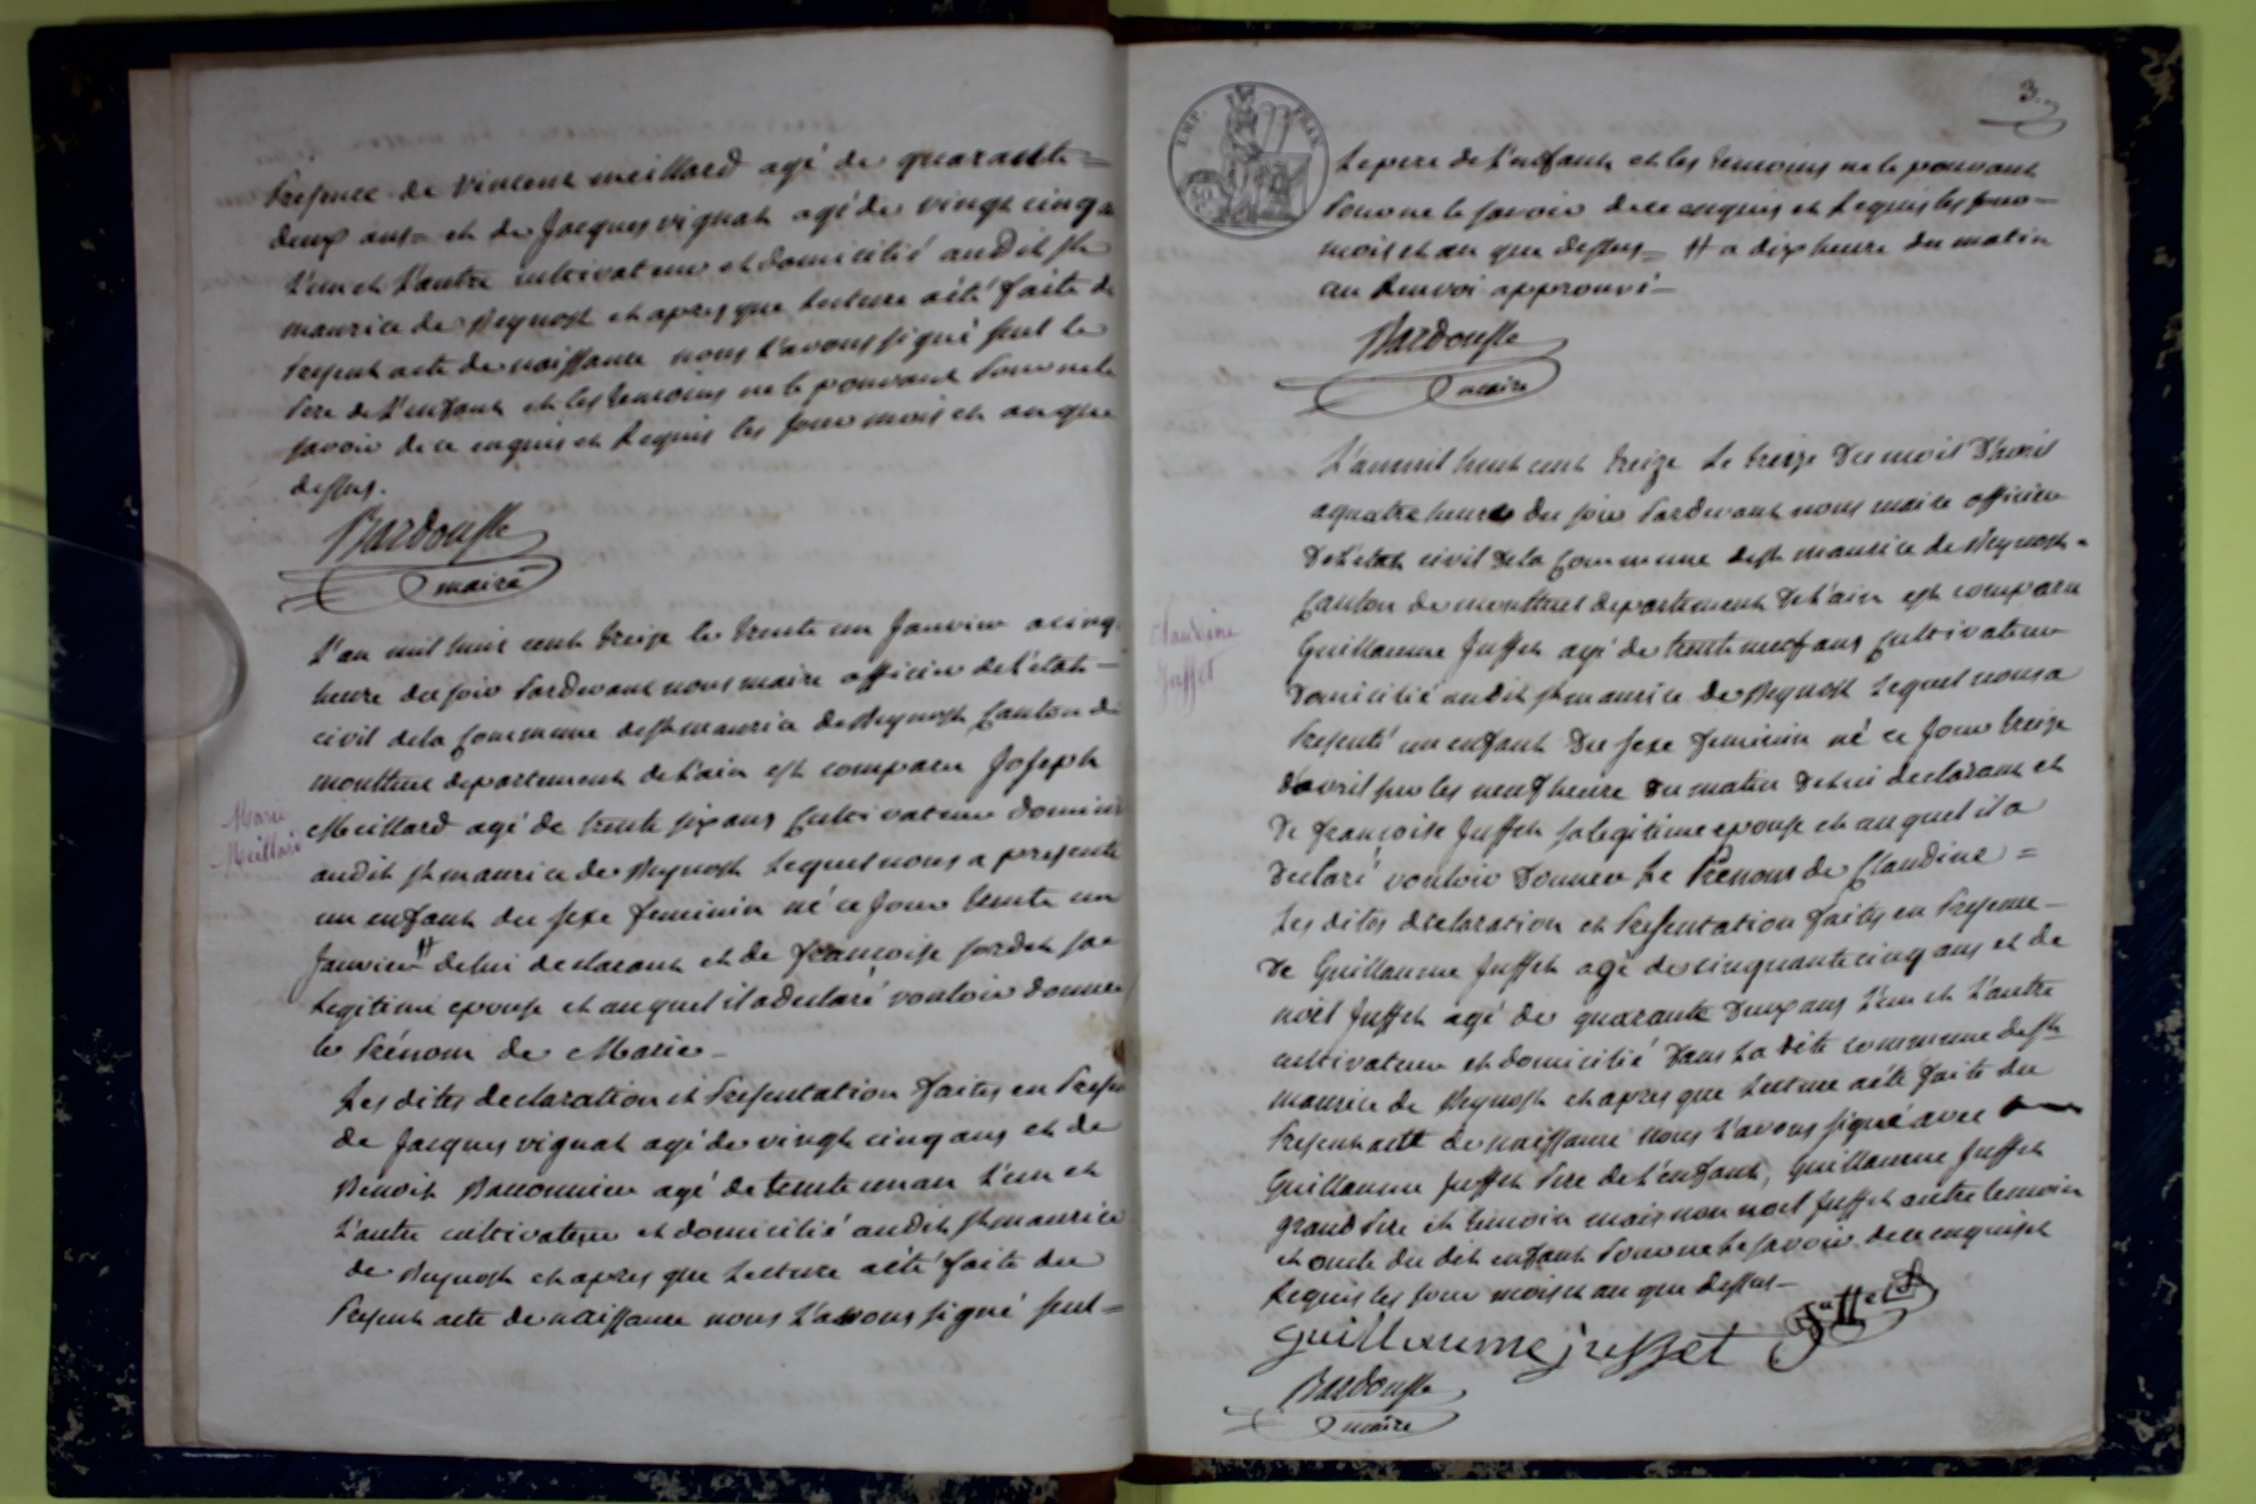 presence de Vincent meillard agé de quarante =
deux ans = et de Jacques vignat agé de vingt cinq a
l'un et l'autre cultivateur et domicilié audit st
maurice de Beynost et apres que lecture aété faite du
present acte de naissance nous l'avons signé seul le
Pere de l'enfant et les temoins ne le pouvant pour ne le
savoir de ce enquis et Requis les jour mois et an que
dessus.
Bardousse
maire
L'an mil huit cent treize le trente un Janvier a cinq
heure du soir Pardevant nous maire officier de l'état —
civil dela Commune de st maurice de Beynost Canton de
montluel departement de l'ain est comparu Joseph
Marie
Meillard
Meillard agé de trente six ans Cultivateur domici
audit st maurice de Beynost Lequel nous a presenté
un enfant du sexe feminin né ce jour trente un
Janvier # de lui declarant et de françoise sordet sa =
Legitime epouse et au quel il a declaré vouloir donner
le Prénom de Marie —
Les dites declaration et Presentation faites en Prese
de Jacques vignat agé de vingt cinq ans et de
Benoit agé de trente un an l'un et
L'autre cultivateur et domicilié audit st maurice
de Beynost et apres que Lecture aété faite du
Present acte de naissance nous L'avons signé seul =
3
EMP. FRAN
Le pere de L'enfant et les temoins ne le pouvant
Pour ne le savoir de ce enquis et Requis les jour —
mois et an que dessus = # a dix heure du matin
au Renvoi approuvé —
Bardousse
maire
L'an mil huit cent treize Le treize Du mois D'avril
a quatre heures du soir Pardevant nous maire officier
De L'etat civil De la Commune de st maurice de Beynost =
Canton de montluel departement De L'ain est comparu
Claudine
Juffet
Guillaume Juffet agé de trente neuf ans Cultivateur
Domicilié audit st maurice de Beynost Lequel nous a
Presenté un enfant Du sexe feminin né ce jour treize
d'avril sur les neuf heure Du matin De lui declarant et
De françoise Juffet sa legitime epouse et au quel il a
Declaré vouloir Donner Le Prénom de Claudine =
Les dites declaration et Presentation faites en Presence —
De Guillaume Juffet agé de cinquante cinq ans et de
noël Juffet agé de quarante Deux ans L'un et L'autre
cultivateur et domicilié Dans La dite commune de st
maurice de Beynost et apres que Lecture aété faite du
Present acte de naissance nous L'avons signé avec
Guillaume Juffet Pere de L'enfant, Guillaume Juffet
grand Pere et temoin mais non noel Juffet autre temoin
et oncle du dit enfant Pour ne Le savoir de ce enquis et
Requis les jour mois et an que Dessus —
guillaume juffet Juffet
Bardousse
maire